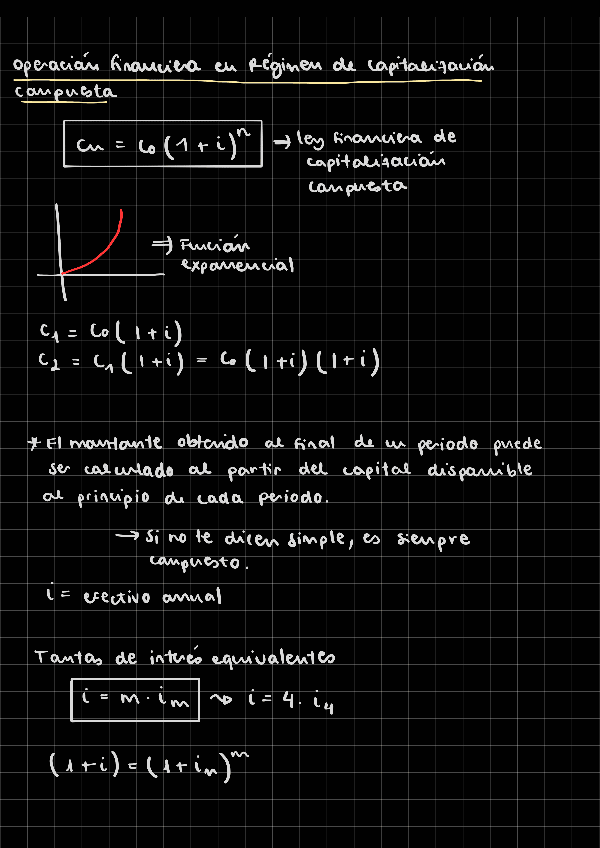 Operación financiera en Régimen de capitalización
compuesta
Cn = Co (1 + i)^n → ley financiera de
capitalización
compuesta
⇒ Función
exponencial
C₁ = Co (1 + i)
C₂ = C₁ (1 + i) = Co (1 + i) (1 + i)
* El montante obtenido al final de un periodo puede
ser calculado al partir del capital disponible
al principio de cada periodo.
→ Si no te dicen simple, es siempre
compuesto.
i = efectivo anual
Tantos de interés equivalentes
i = m · iₘ ⇝ i = 4 · i₄
(1 + i) = (1 + iₘ)^m